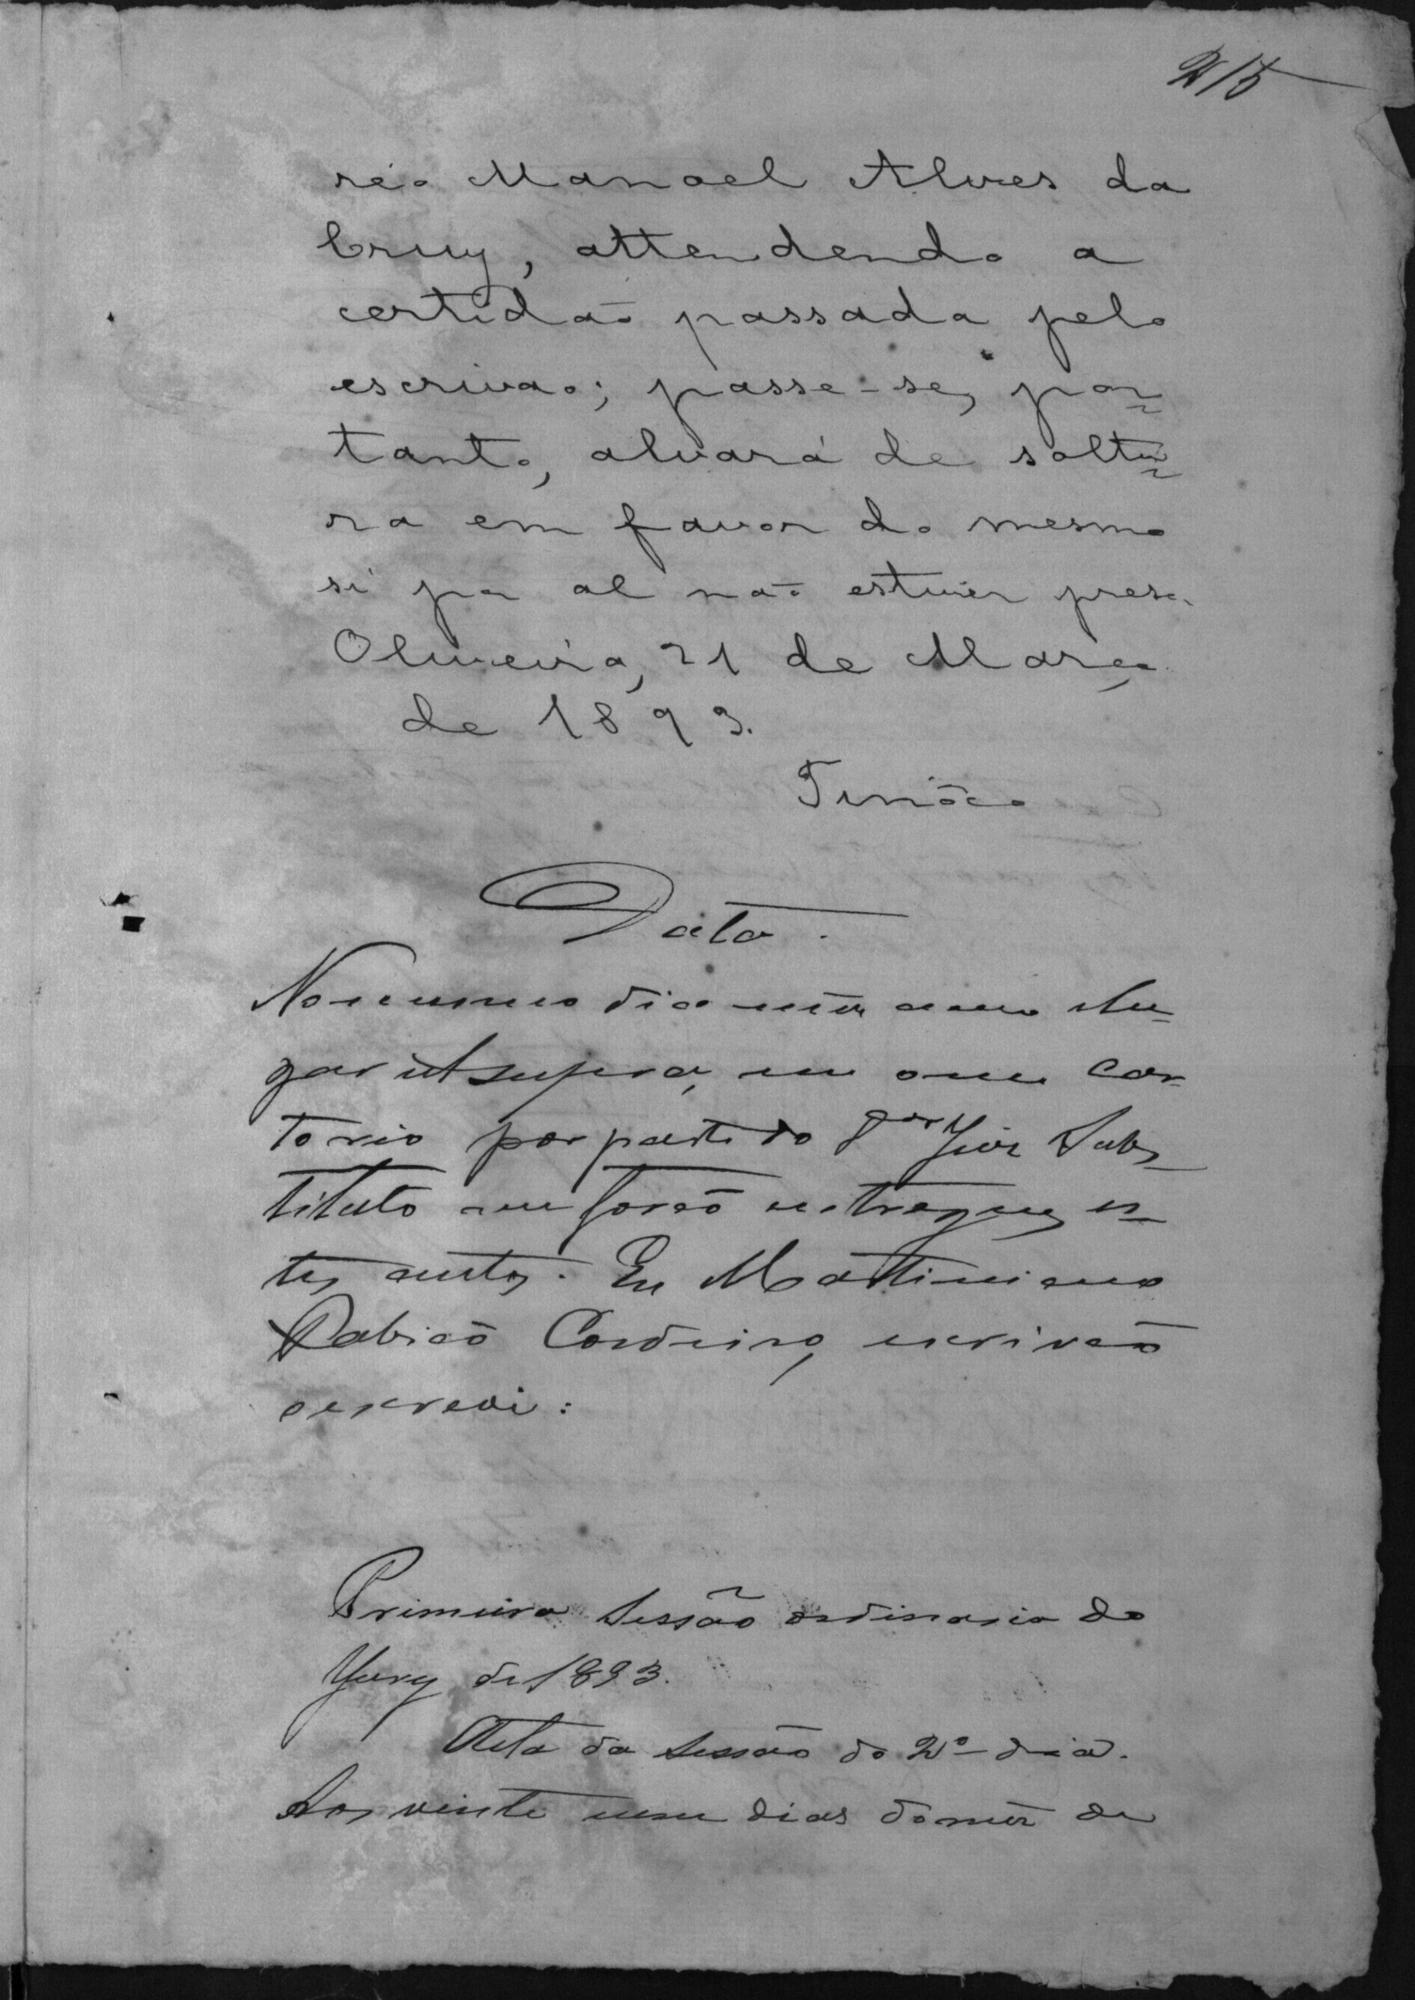 215
réo Manoel Alves da
Cruz, attendendo a
certidão passada pelo
escrivão; passe-se, por-
tanto, alvará de soltu-
ra em favor do mesmo
si por al não estiver preso.
Oliveira, 21 de Março
de 1893.
Tinôco
Data.
No mesmo dia mez anno e lu-
gar ut supra, em o meu car-
torio por parte do Juiz Subs-
tituto me forão entregues es-
tes autos. Eu Martiniano
Rabicó Cordeiro, escrivão
o escrevi:
Primeira Sessão ordinaria do
Jury de 1893.
Acta da Sessão do 2º dia.
Aos vinte um dias do mez de